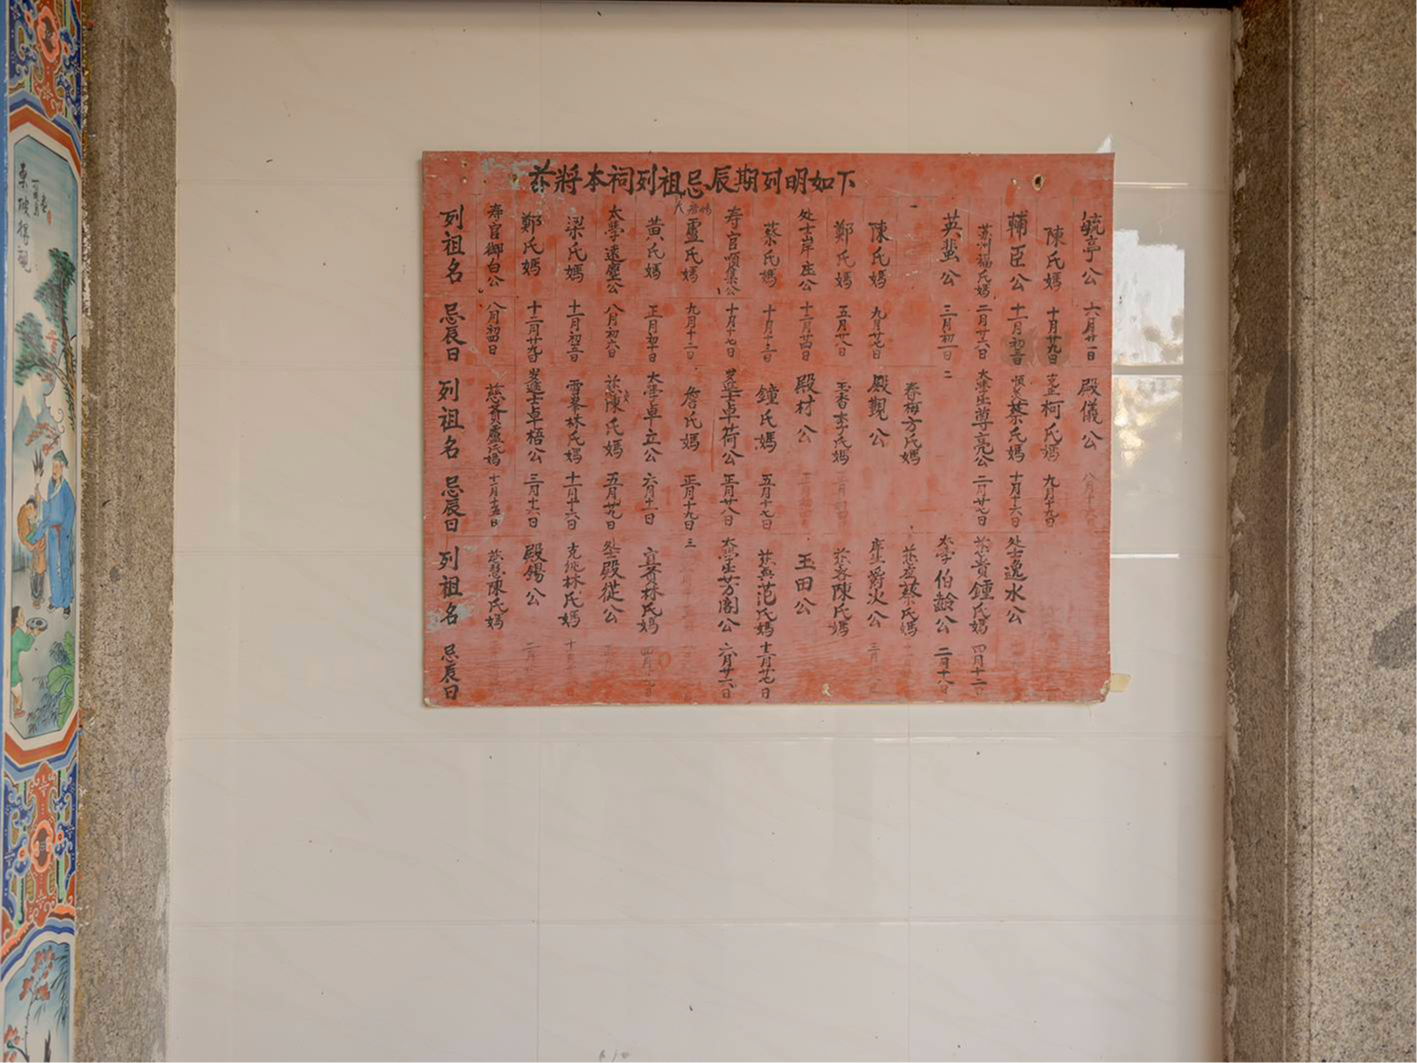 兹將本祠列祖忌辰期列明如下
列祖名 忌辰日
寿官御白公 八月初四日
鄭氏媽 十二月廿九日
梁氏媽 十一月初三日
太學遠塵公 八月初六日
黄氏媽 正月初十日
盧氏媽 九月十二日
寿官順集公 十月十七日
蔡氏媽 十月十三日
处士岸庄公 十二月廿四日
鄭氏媽 五月廿八日
陳氏媽 九月廿七日
英蜚公 三月初一日
氏媽 二月廿六日
輔臣公 十一月初三日
陳氏媽 十月廿九日
毓亭公 六月廿一日
列祖名 忌辰日
慈賓盧氏媽 十二月十五日
進士卓梧公 三月十六日
雪峯林氏媽 十一月十六日
慈陳氏媽 五月廿九日
太學卓立公 六月十一日
詹氏媽 正月十九日
進士卓荷公 正月廿八日
鐘氏媽 五月十七日
殿材公
李氏媽
殿觀公
春梅方氏媽
二
太學生尊亮公 二月廿七日
蔡氏媽 十月十六日
柯氏媽 九月十九日
殿儀公 八月十六日
列祖名 忌辰日
慈慧陳氏媽
殿錫公
克純林氏媽
殿従公
宜賓林氏媽
三
太學生芳園公 六月廿六日
范氏媽 十二月廿七日
玉田公
陳氏媽
庠生爵次公
蔡氏媽
太學伯齡公 二月十八
慈貴鍾氏媽 四月十二
处士逸水公